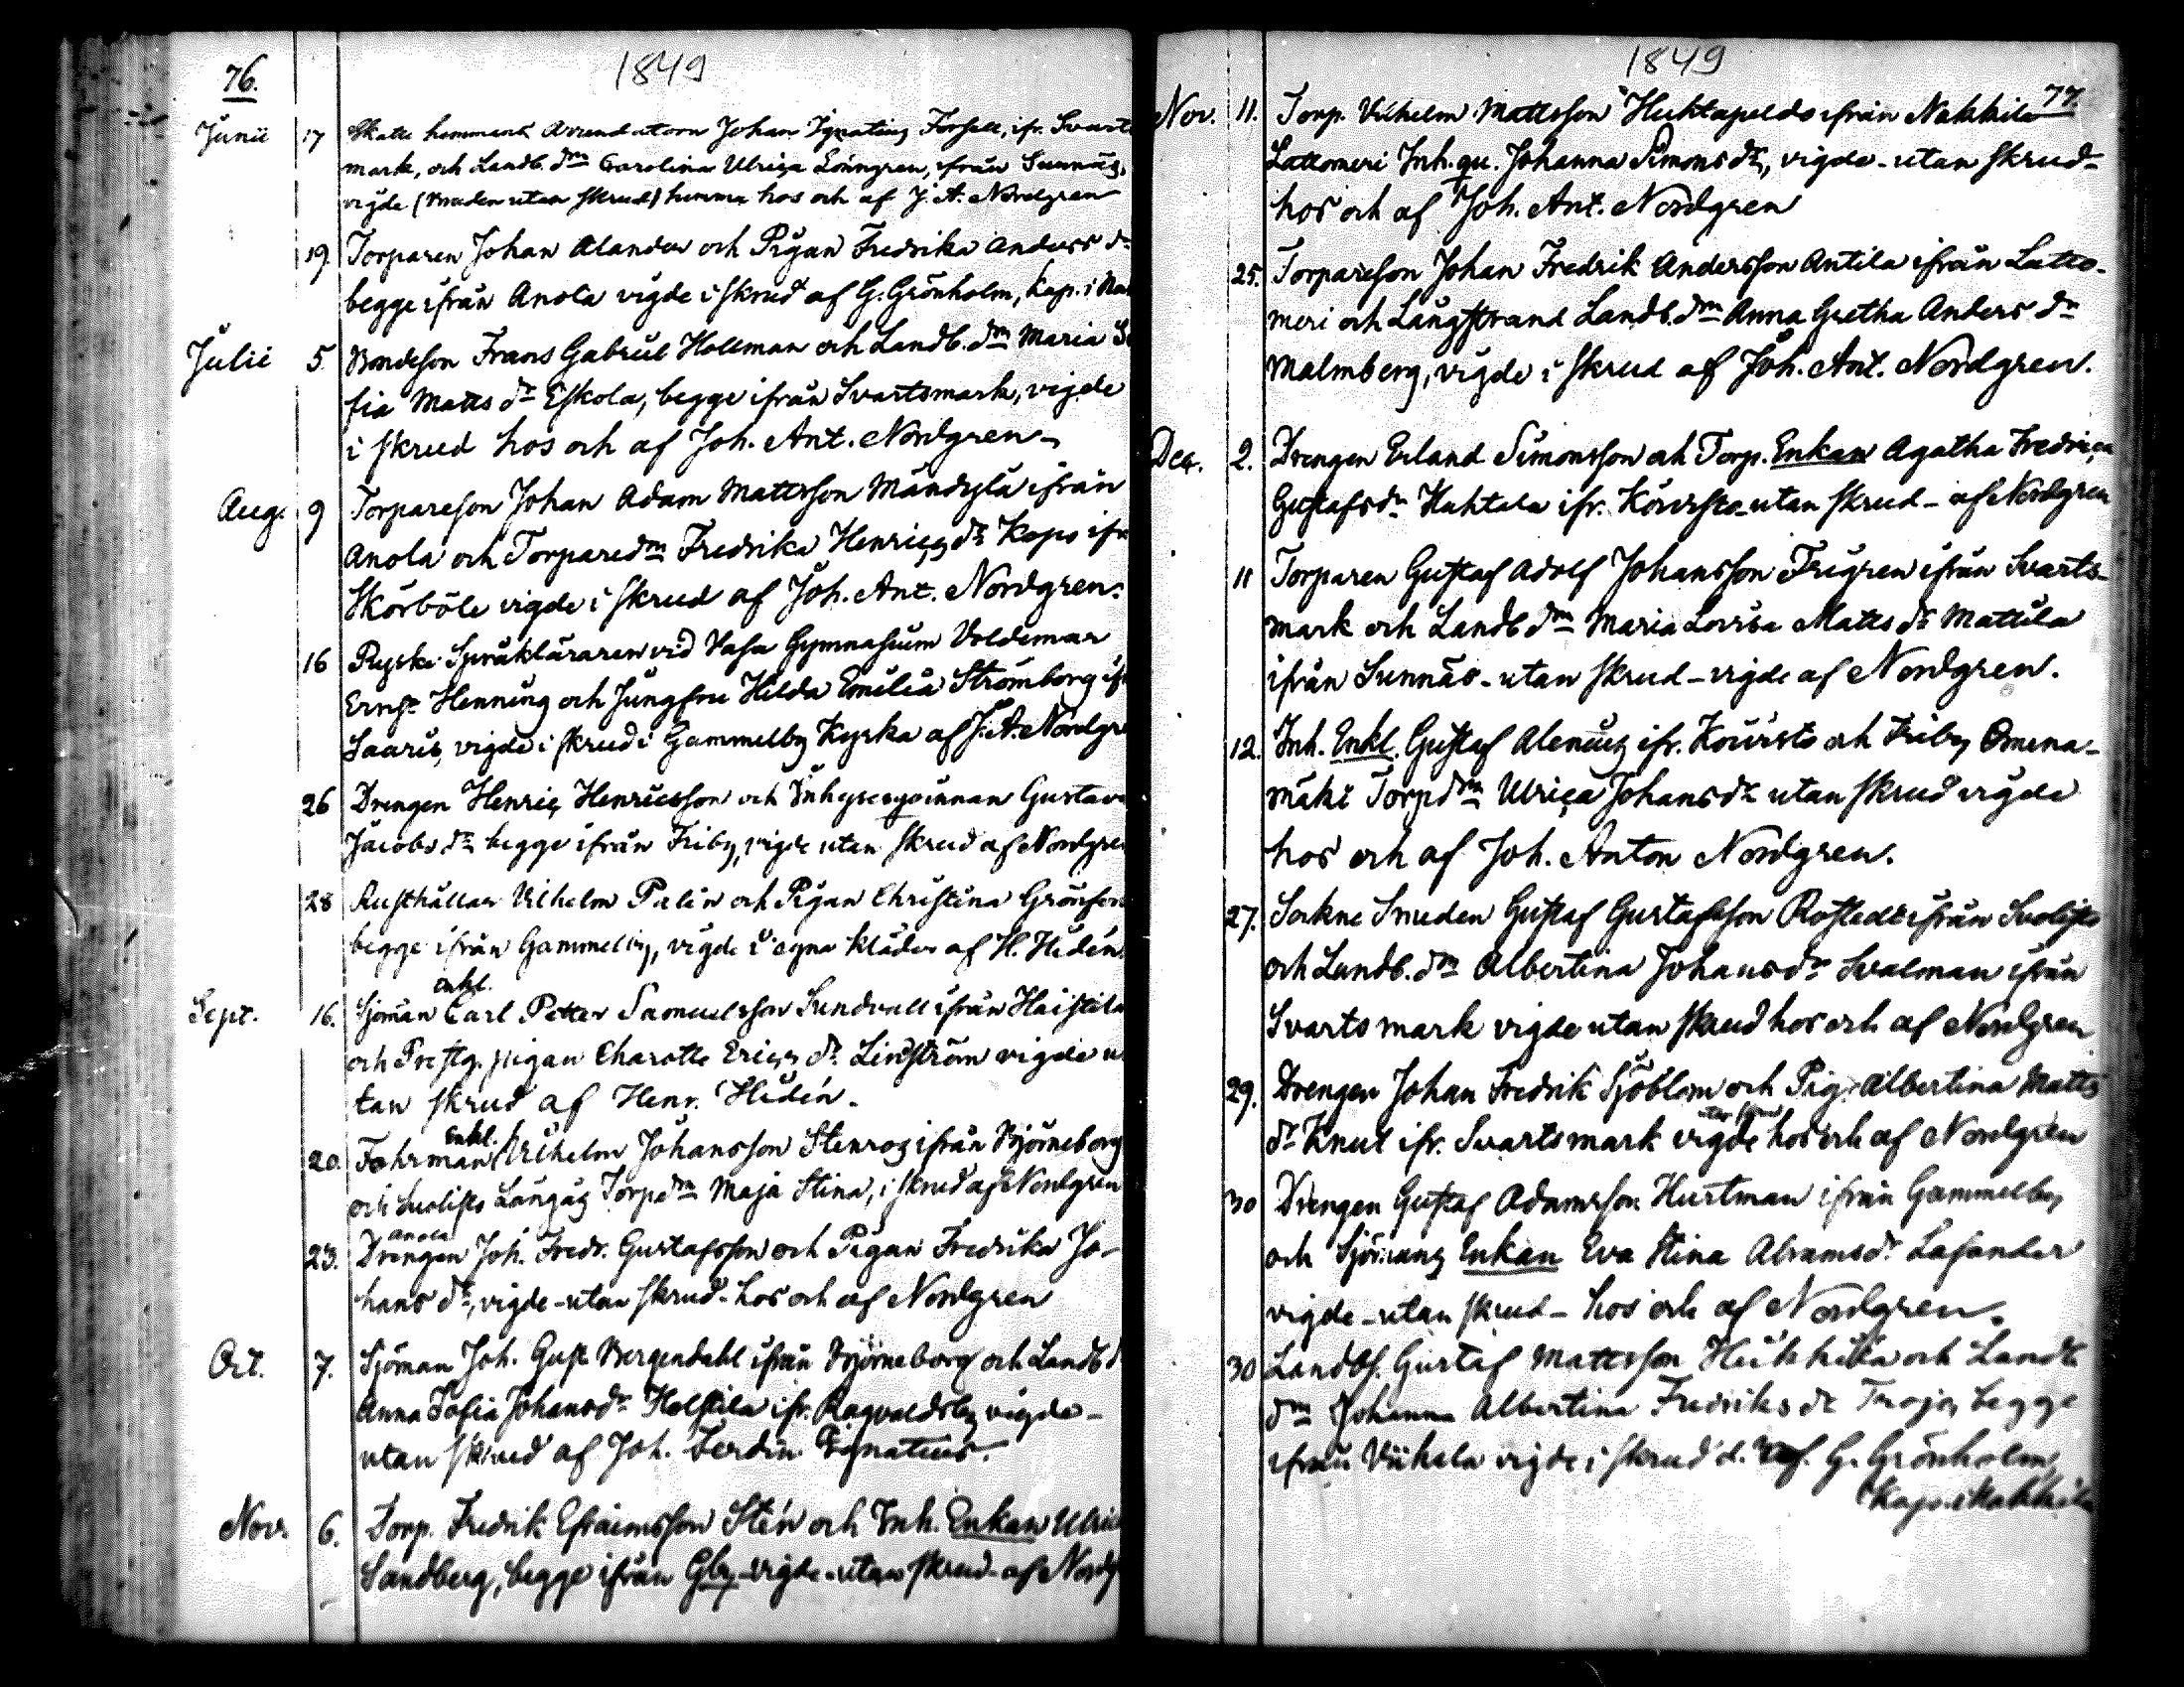 76.
1849
Junii 17 Skatte hemmans Arrendatorn Johan Ignatius Forsell, ifr. Svarts
mark, och Landb. dm Carolina Ulrica Lönngren, ifrån Sunnäs,
vigde (bruden utan skrud) hemma hos och af J. A. Nordgren
19. Torparen Johan Alander och Pigan Fredrika Anders dr
begge ifrån Anola vigde i skrud af G. Grönholm, Kap. i Nak
Julii 5. Bondeson Frans Gabriel Hollman och Landb. dm Maria So
fia Matts dr Eskola, begge ifrån Svartsmark, vigde
i skrud hos och af Joh. Ant. Nordgren
Aug. 9 Torpareson Johan Adam Mattsson Mändylä ifrån
Anola och Torparedm Fredrika Henrics dr Kops ifr
Skörböle vigde i skrud af Joh. Ant. Nordgren.
16 Ryske Språkläraren vid Vasa Gymnasium Voldemar
Ernst Henning och Jungfru Hilda Emilia Strömborg ifr
Saaris, vigde i skrud i Gammelby Kyrka af J. A. Nordgre
26 Drengen Henric Henricsson och Inhysesqvinnan Gustava
Jacobs dr begge ifrån Friby, vigde utan skrud af Nordgren
28 Rusthållar Vilhelm Palin och Pigan Christina Grönfors
begge ifrån Gammelby, vigde i egna kläder af H. Hidén.
Enkl.
Sept. 16. Sjöman Carl Petter Samuelsson Sundvall ifrån Haistila
och Prestg. pigan Charotte Erics dr Lindström vigde u
tan skrud af Henr. Hidén.
Enkl.
20. Fohrman Vilhelm Johansson Stenros ifrån Björneborg
och Suolisto Långäs Torpdm Maja Stina, i skrud af Nordgren
Anola
23. Drengen Joh. Fredr. Gustafsson och Pigan Fredrika Jo-
hans dr, vigde - utan skrud - hos och af Nordgren
Oct. 7. Sjöman Joh. Gust Bergendahl ifrån Björneborg och Landb d
Anna Sofia Johansdr Holstila ifr. Ragvaldsby vigde -
utan skrud af Joh. Ferdin. Ignatius.
Nov. 6. Torp. Fredrik Efraimsson Stén och Inh. Enkan Ulric
Sandberg, begge ifrån Gby - vigde - utan skrud - af Nordg
1849
77.
Nov. 11. Torp. Vilhelm Mattsson Huktapeldo ifrån Nakkila
Lattomeri Inh. qv. Johanna Simons dr, vigde - utan skrud -
hos och af Joh. Ant. Nordgren
25. Torpareson Johan Fredrik Andersson Antila ifrån Latto-
meri och Långstrand Landb. dm Anna Gretha Anders dr
Malmberg, vigde i skrud af Joh. Ant. Nordgren.
Dec. 2. Drengen Erland Simonsson och Torp. Enkan Agatha Fredrica
Gustafsdr Huhtala ifr. Koivisto - utan skrud - af Nordgren
11 Torparen Gustaf Adolf Johansson Frigren ifrån Svarts-
mark och Landb dm Maria Lovisa Matts dr Mattila
ifrån Sunnäs - utan skrud - vigde af Nordgren.
12. Inh. Enkl. Gustaf Alenius ifr. Koivisto och Friby Omena-
mäki Torpdm Ulrica Johansdr utan skrud vigde
hos och af Joh. Anton Nordgren.
27. Sockne Smeden Gustaf Gustafsson Rostedt ifrån Suolisto
och Landb. dm Albertina Johansdr Svalman ifrån
Svartsmark vigde utan skrud hos och af Nordgren
29. Drengen Johan Fredrik Sjöblom och Pig. Albertina Matts
dr Knut ifr. Svartsmark vigde hos och af Nordgren
30 Drengen Gustaf Adamsson Hurtman ifrån Gammelby
och Sjömans Enkan Eva Stina Abramsdr Lasander
vigde - utan skrud - hos och af Nordgren.
30 Landbs. Gustaf Mattsson Heikkilä och Landb
dm Johanna Albertina Fredriks dr Troja, begge
ifrån Viikala vigde i skrud af G. Grönholm
Kap. i Nakkila